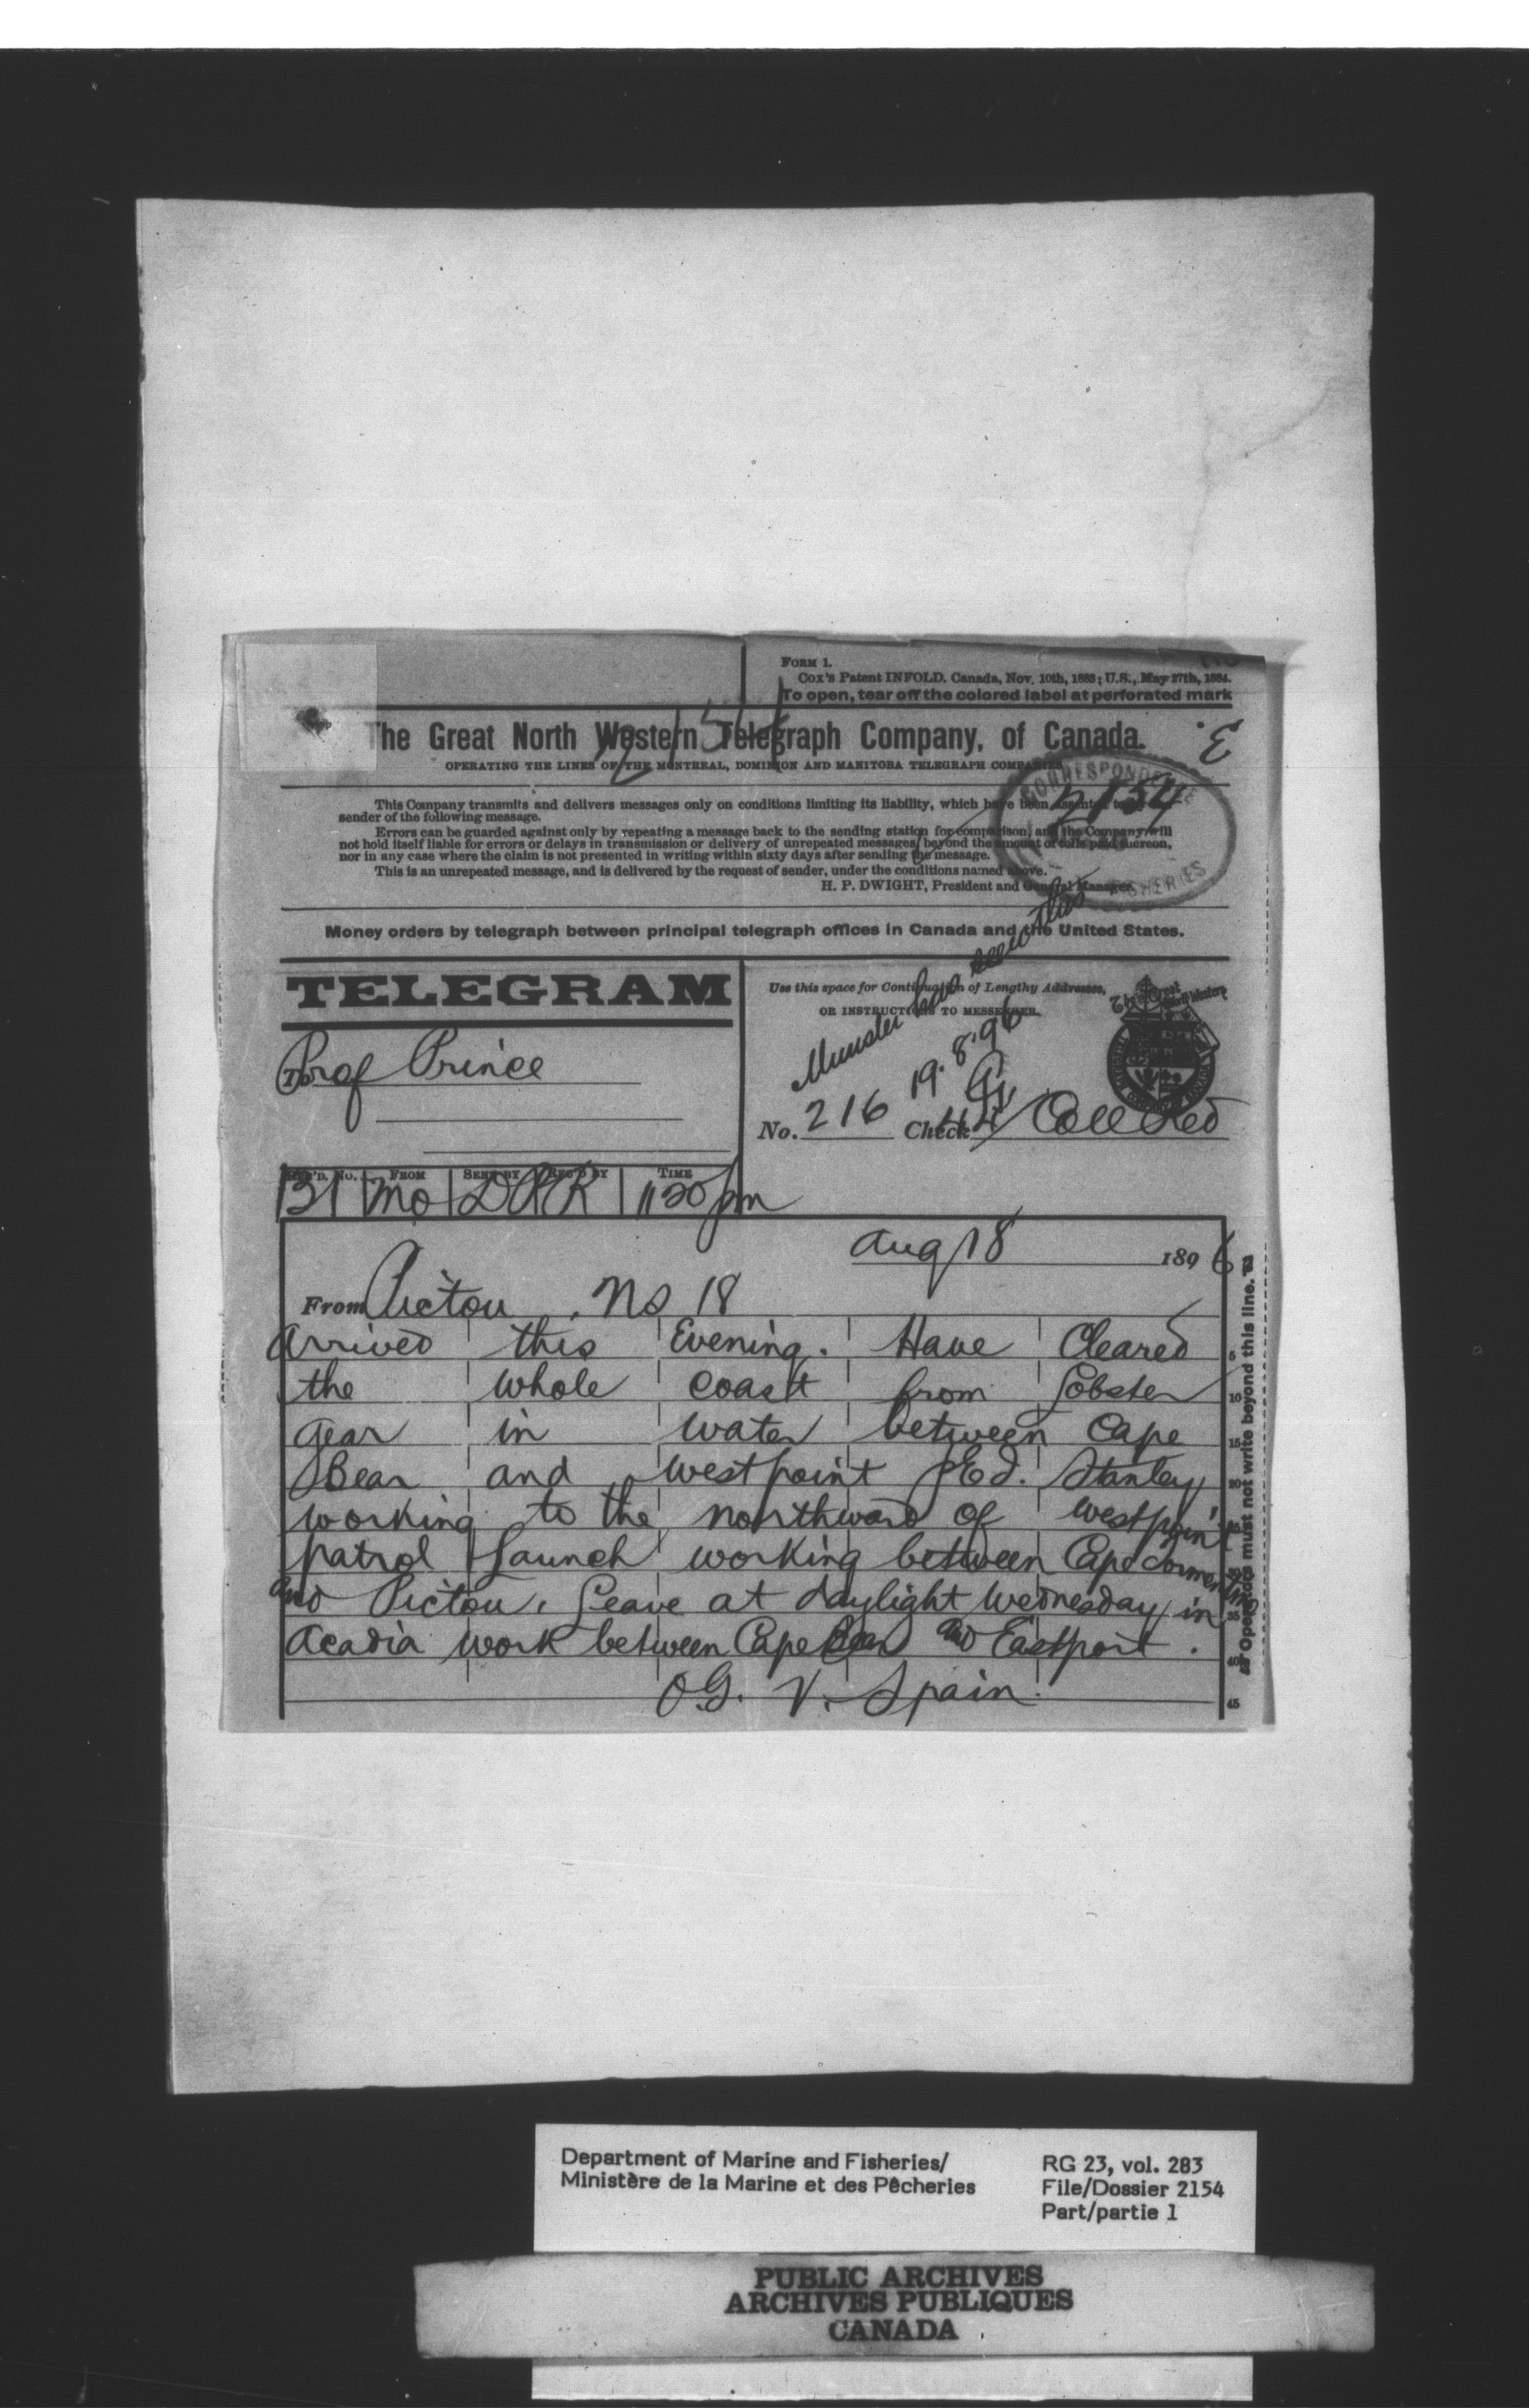 FORM 1.
Cox's Patent INFOLD. Canada, Nov. 10th, 1883; U.S., May 27th, 1884.
To open, tear off the colored label at perforated mark
The Great North Western Telegraph Company, of Canada.
OPERATING THE LINES OF THE MONTREAL, DOMINION AND MANITOBA TELEGRAPH COMPANIES
This Company transmits and delivers messages only on conditions limiting its liability, which have been assented to
sender of the following message.
Errors can be guarded against only by repeating a message back to the sending station for comparison, and the Company will
not hold itself liable for errors or delays in transmission or delivery of unrepeated messages, beyond the amount of tolls paid thereon,
nor in any case where the claim is not presented in writing within sixty days after sending the message.
This is an unrepeated message, and is delivered by the request of sender, under the conditions named above.
H. P. DWIGHT, President and General Manager.
CORRESPONDENCE
2154
FISHERIES
Money orders by telegraph between principal telegraph offices in Canada and the United States.
TELEGRAM
Use this space for Continuation of Lengthy Addresses,
OR INSTRUCTIONS TO MESSENGER.
Minister has seen this
19.8.96
The Great North Western
To Prof Prince
No. 216 Check 44 Collect Red
REC'D. No. FROM SENT BY REC'D BY TIME
131 Mo D RK 1120 pm
Aug 18 1896
From Pictou . NS 18
Arrived this Evening. Have Cleared
the whole coast from Lobster
gear in water between Cape
Bear and westpoint PEI. Stanley
working to the northward of westpoint
patrol Launch working between Cape Tormentine
and Pictou. Leave at daylight Wednesday in
Acadia work between Cape Bear and Eastport.
O.G. V. Spain.
5
10
15
20
25
30
35
40
45
Operators must not write beyond this line.
Department of Marine and Fisheries/
Ministère de la Marine et des Pêcheries
RG 23, vol. 283
File/Dossier 2154
Part/partie 1
PUBLIC ARCHIVES
ARCHIVES PUBLIQUES
CANADA